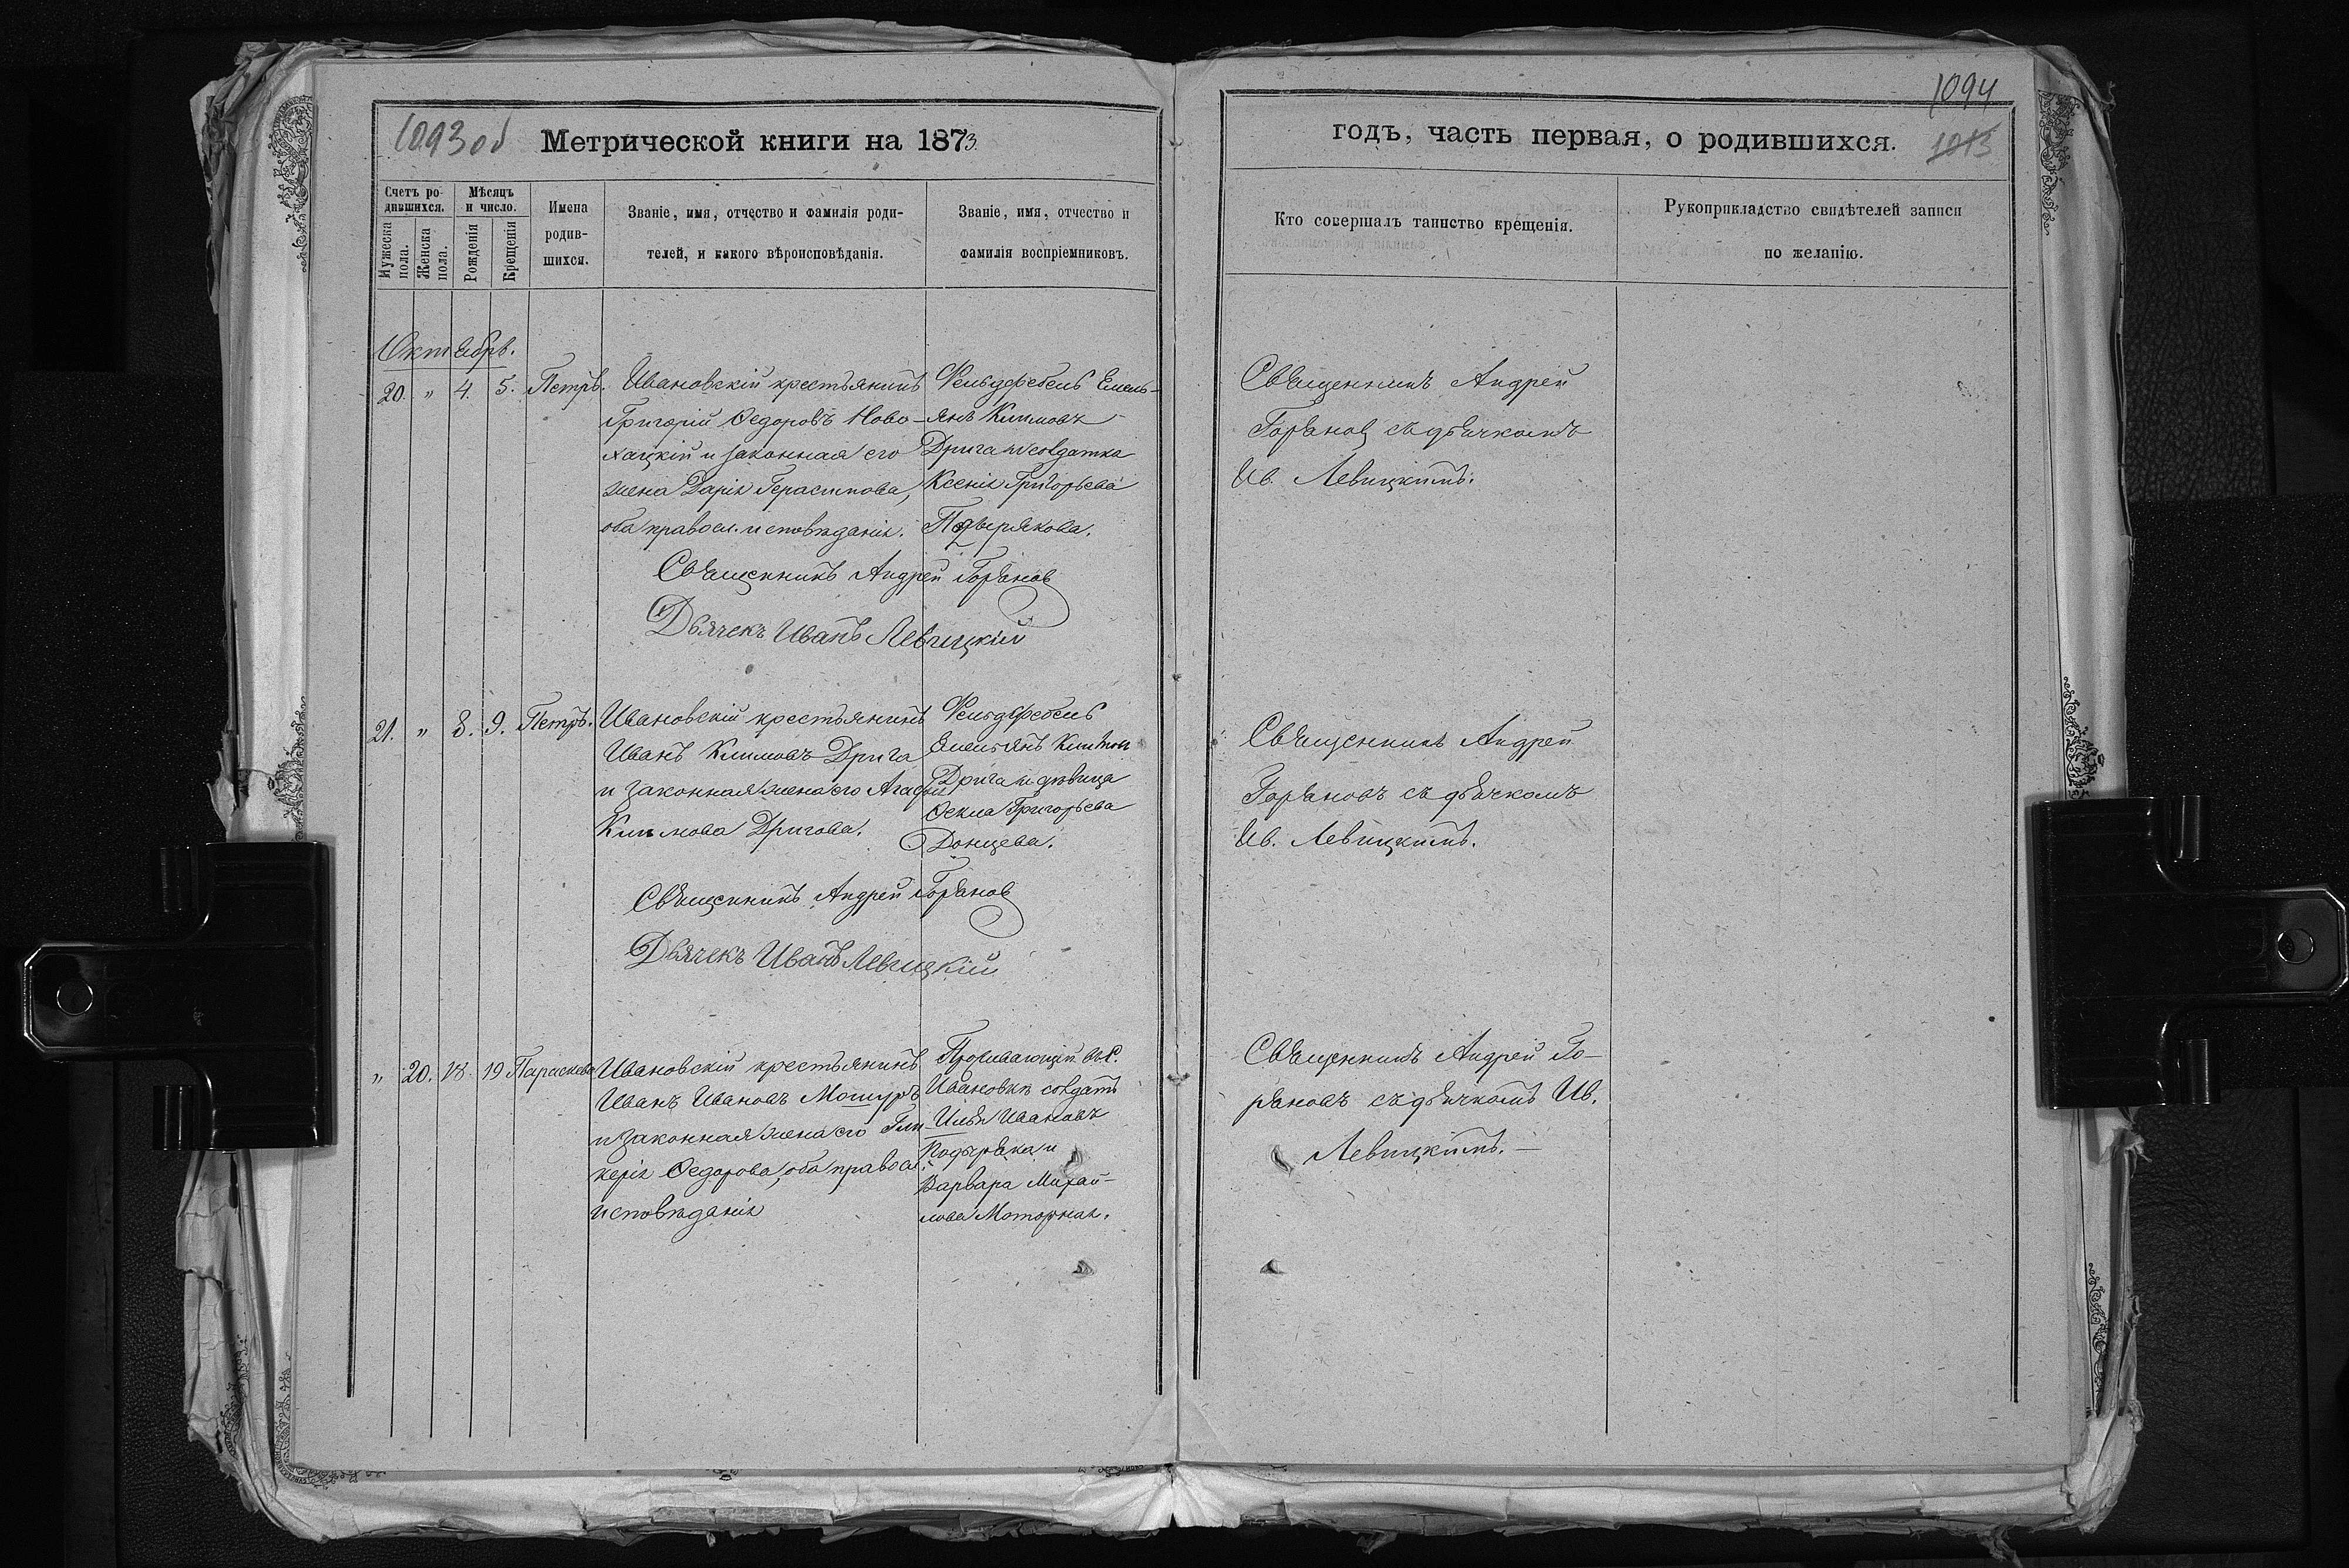 1093 об
Метрической книги на 1873
Счетъ ро-
дившихся.
Мѣсяцъ
и число.
Мужеска
пола.
Женска
пола.
Рожденія
Крещенія
Имена
родив-
шихся.
Званіе, имя, отчество и фамилія роди-
телей, и какого вѣроисповѣданія.
Званіе, имя, отчество и
фамилія воспріемниковъ.
Октябрь.
20. " 4. 5. Петръ.
Ивановскій крестьянинъ
Григорій Ѳедоровъ Ново-
хацкій и законная его
жена Дарія Герасимова,
оба правосл. исповѣданія.
Фельдфебель Емель-
янъ Климовъ
Дрига и солдатка
Ксенія Григорьева
Священникъ Андрей Горѣанов
Дьячекъ Иванъ Левицкій
21. " 8. 9. Петръ.
Ивановскій крестьянинъ
Иванъ Климовъ Дрига
и законная жена его Агафія
Климова Дригова.
Фельдфебель
Емельянъ Климов
Дрига и дѣвица
Ѳекла Григорьева
Донцева.
Священникъ Андрей
Дьячекъ Иванъ Левицкій
" 20. 18. 19 Параскева
Ивановскій крестьянинъ
Иванъ Ивановъ Мошуръ
и законная жена его Гли-
керія Ѳедорова, оба правосл.
исповѣданія
Проживающій въ с.
Ивановкѣ солдатъ
Илья Ивановъ
и
Варвара Михай-
лова Моторная.
1094
1013
годъ, часть первая, о родившихся.
Кто совершалъ таинство крещенія.
Рукоприкладство свидѣтелей записи
по желанію.
Священникъ Андрей
съ дьячкомъ
Ив. Левицкимъ.
Священникъ Андрей
съ дьячкомъ
Ив. Левицкимъ.
Священникъ Андрей Го-
рановъ съ дьячкомъ Ив.
Левицкимъ. —